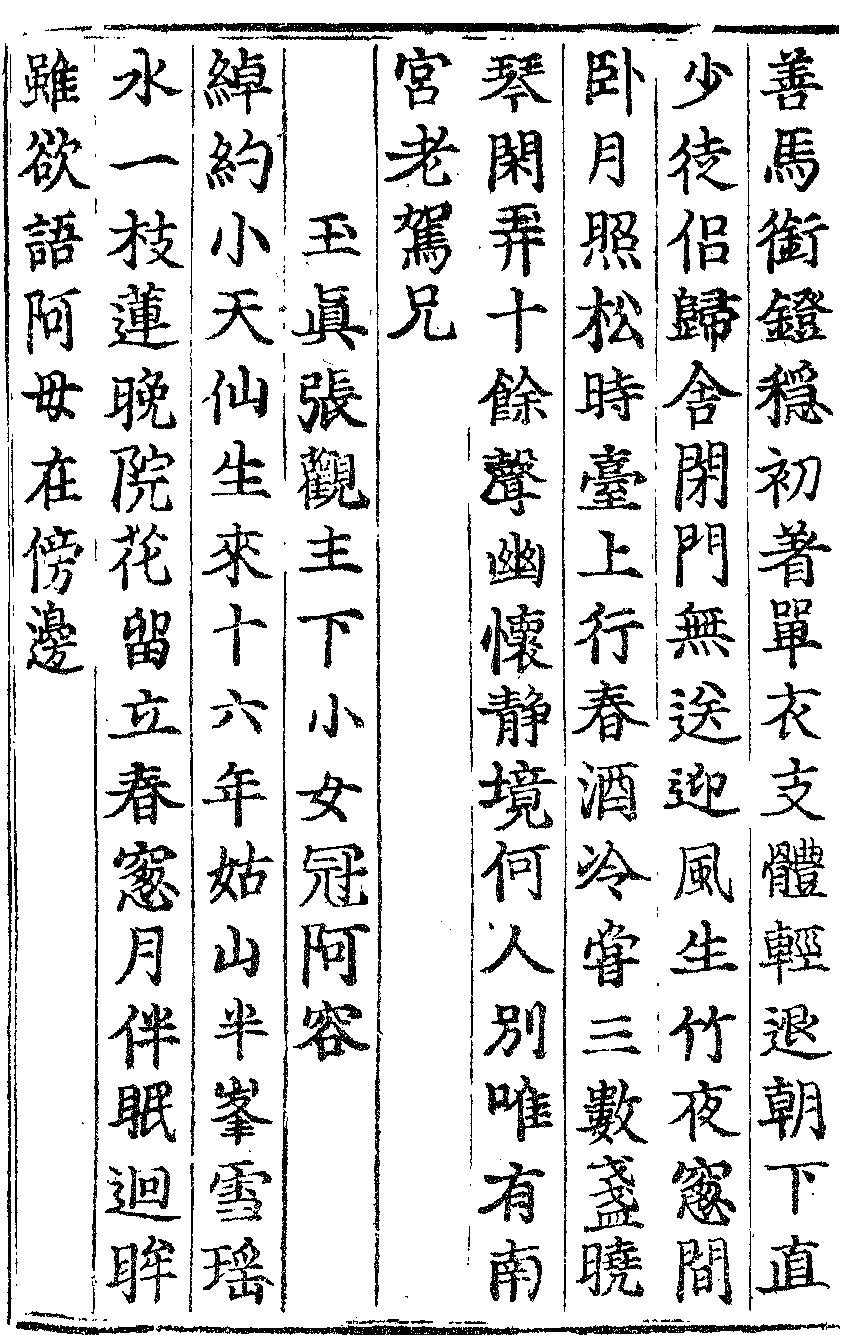 善馬銜鐙穩初著單衣支體輕退朝下直
少徒侶歸舍閉門無送迎風生竹夜窻間
卧月照松時臺上行春酒冷甞三數盞曉
琴閑弄十餘聲幽懷静境何人別唯有南
宮老駕兄
玉真張觀主下小女冠阿容
綽約小天仙生來十六年姑山半峯雪瑶
水一枝蓮晚院花留立春窻月伴眠迴眸
雖欲語阿母在傍邊